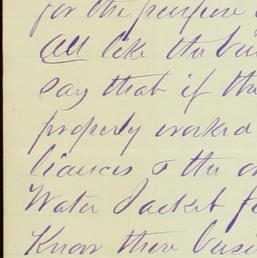 for the purpose
All like the
say that if the
properly worked
liances & the
Water Jacket
Know there